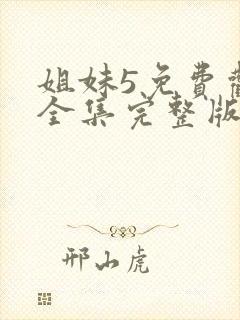 姐妹5免费
全集完整版
邢山虎